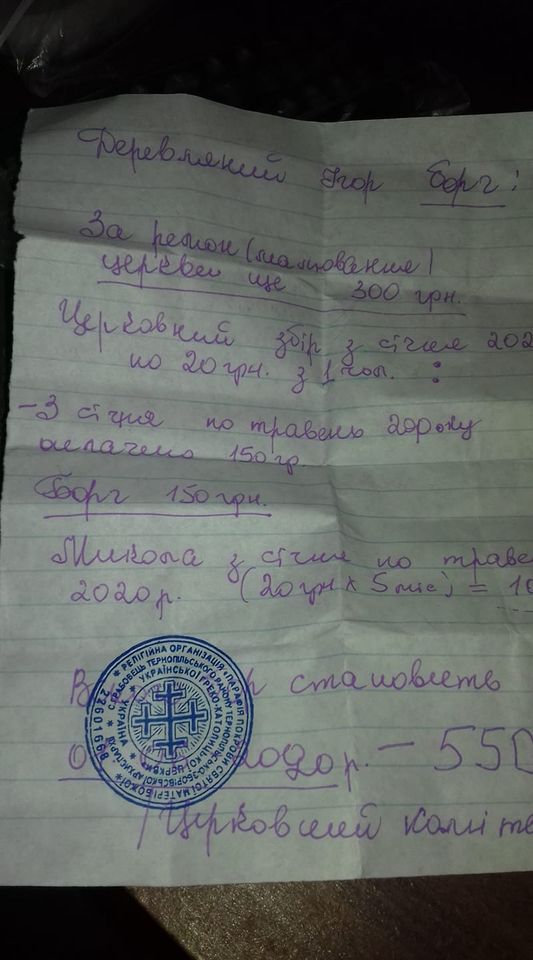 Деревляний Ігор Борг:
За ремон (малювання)
церкви ще 300 грн.
Церковний збір з січня 202
по 20 грн. з 1 чол. :
- З січня по травень 20 року
оплачено 150 гр.
Борг 150 грн.
Микола з січня по траве
2020 р. (20 грн х 5 міс) = 10
становить
2020 р. – 550
/ Церковний коміте
РЕЛІГІЙНА ОРГАНІЗАЦІЯ «ПАРАФІЯ ПОКРОВИ СВЯТОЇ МАТЕРІ БОЖОЇ
ТЕРНОПІЛЬСЬКО-ЗБОРІВСЬКОЇ АРХИЄПАРХІЇ
УКРАЇНСЬКОЇ ГРЕКО-КАТОЛИЦЬКОЇ ЦЕРКВИ»
ТЕРНОПІЛЬСЬКОГО РАЙОНУ
УКРАЇНА